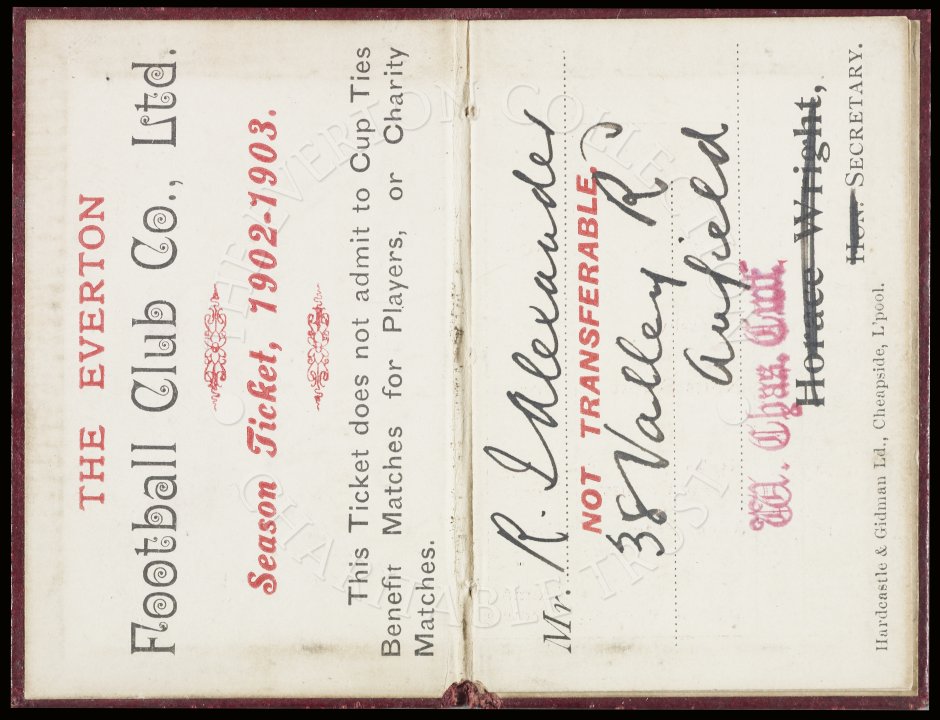 THE EVERTON
Football Club Co., Ltd.
Season Ticket, 1902-1903.
This Ticket does not admit to Cup Ties
Benefit Matches for Players, or Charity
Matches.
Mr. R. J Alexander
NOT TRANSFERABLE.
38 Valley Rd
Anfield
W. Chas. Cuff
Horace Wright,
HON. SECRETARY.
Hardcastle & Gidman Ld., Cheapside, L'pool.
THE EVERTON COLLECTION
CHARITABLE TRUST